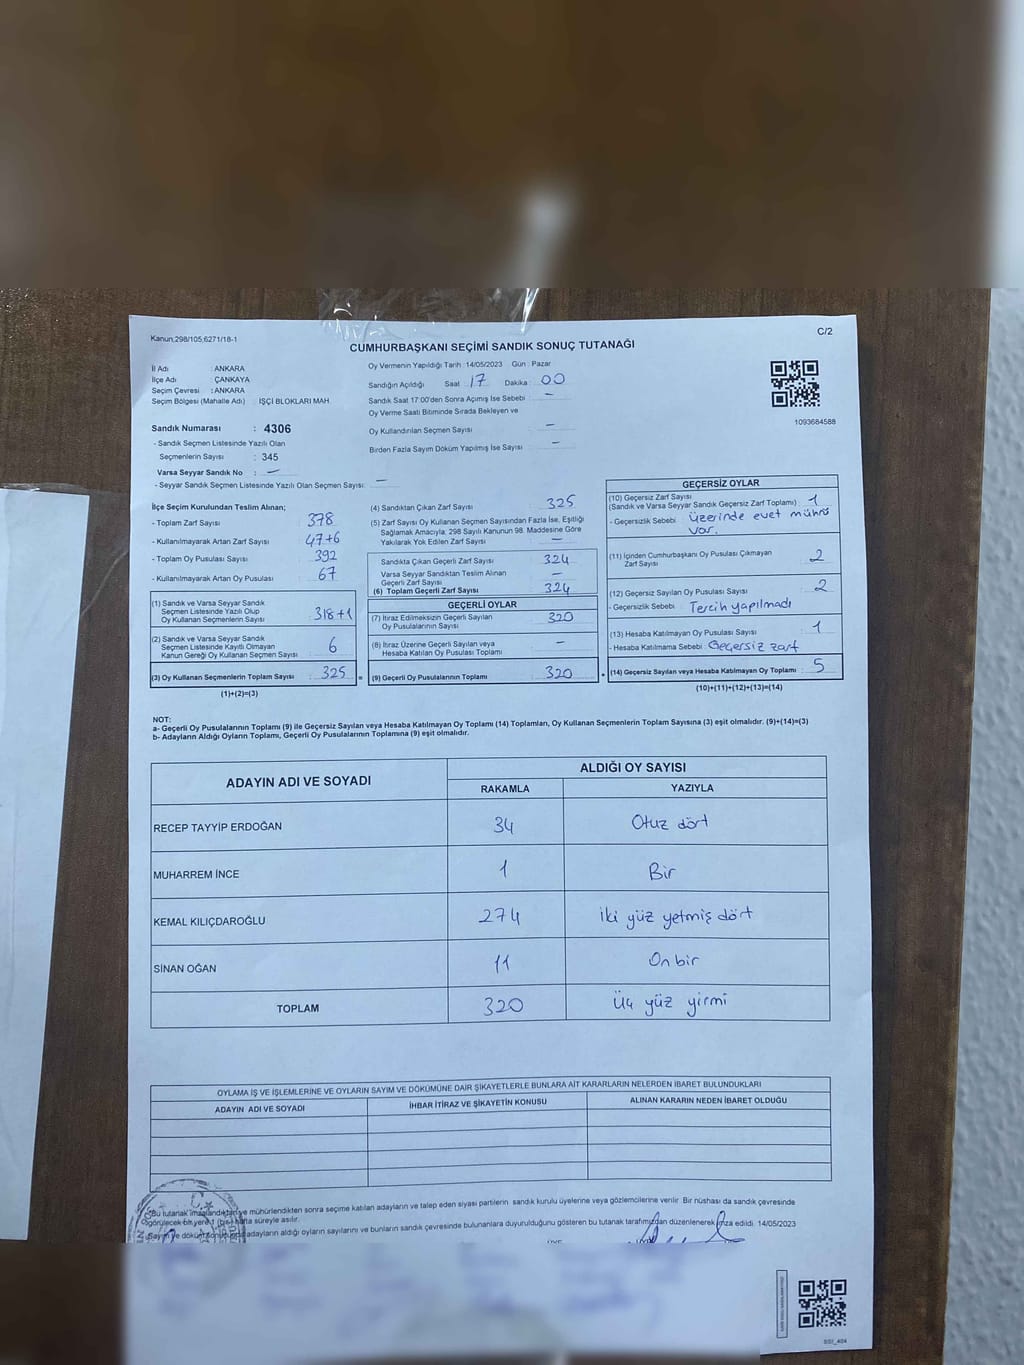 Kanun;298/105,6271/18-1
C/2
CUMHURBAŞKANI SEÇİMİ SANDIK SONUÇ TUTANAĞI
İl Adı : ANKARA
İlçe Adı : ÇANKAYA
Seçim Çevresi : ANKARA
Seçim Bölgesi (Mahalle Adı) : İŞÇİ BLOKLARI MAH.
Sandık Numarası : 4306
- Sandık Seçmen Listesinde Yazılı Olan
Seçmenlerin Sayısı : 345
Varsa Seyyar Sandık No : —
- Seyyar Sandık Seçmen Listesinde Yazılı Olan Seçmen Sayısı: —
Oy Vermenin Yapıldığı Tarih :14/05/2023 Gün : Pazar
Sandığın Açıldığı Saat : 17 Dakika : 00
Sandık Saat 17:00'den Sonra Açımış İse Sebebi : —
Oy Verme Saati Bitiminde Sırada Bekleyen ve
Oy Kullandırılan Seçmen Sayısı : —
Birden Fazla Sayım Döküm Yapılmış İse Sayısı : —
1093684588
İlçe Seçim Kurulundan Teslim Alınan;
- Toplam Zarf Sayısı : 378
- Kullanılmayarak Artan Zarf Sayısı : 47+6
- Toplam Oy Pusulası Sayısı : 392
- Kullanılmayarak Artan Oy Pusulası : 67
(1) Sandık ve Varsa Seyyar Sandık
Seçmen Listesinde Yazılı Olup
Oy Kullanan Seçmenlerin Sayısı : 318+1
(2) Sandık ve Varsa Seyyar Sandık
Seçmen Listesinde Kayıtlı Olmayan
Kanun Gereği Oy Kullanan Seçmen Sayısı : 6
(3) Oy Kullanan Seçmenlerin Toplam Sayısı : 325 =
(1)+(2)=(3)
(4) Sandıktan Çıkan Zarf Sayısı : 325
(5) Zarf Sayısı Oy Kullanan Seçmen Sayısından Fazla İse, Eşitliği
Sağlamak Amacıyla; 298 Sayılı Kanunun 98. Maddesine Göre
Yakılarak Yok Edilen Zarf Sayısı : —
Sandıkta Çıkan Geçerli Zarf Sayısı : 324
Varsa Seyyar Sandıktan Teslim Alınan
Geçerli Zarf Sayısı : —
(6) Toplam Geçerli Zarf Sayısı : 324
GEÇERLİ OYLAR
(7) İtiraz Edilmeksizin Geçerli Sayılan
Oy Pusulalarının Sayısı : 320
(8) İtiraz Üzerine Geçerli Sayılan veya
Hesaba Katılan Oy Pusulası Toplamı : —
(9) Geçerli Oy Pusulalarının Toplamı : 320 +
GEÇERSİZ OYLAR
(10) Geçersiz Zarf Sayısı
(Sandık ve Varsa Seyyar Sandık Geçersiz Zarf Toplamı) : 1
- Geçersizlik Sebebi : üzerinde evet mührü
var.
(11) İçinden Cumhurbaşkanı Oy Pusulası Çıkmayan
Zarf Sayısı : 2
(12) Geçersiz Sayılan Oy Pusulası Sayısı : 2
- Geçersizlik Sebebi : Tercih yapılmadı
(13) Hesaba Katılmayan Oy Pusulası Sayısı : 1
- Hesaba Katılmama Sebebi : Geçersiz zarf
(14) Geçersiz Sayılan veya Hesaba Katılmayan Oy Toplamı : 5
(10)+(11)+(12)+(13)=(14)
NOT:
a- Geçerli Oy Pusulalarının Toplamı (9) ile Geçersiz Sayılan veya Hesaba Katılmayan Oy Toplamı (14) Toplamları, Oy Kullanan Seçmenlerin Toplam Sayısına (3) eşit olmalıdır. (9)+(14)=(3)
b- Adayların Aldığı Oyların Toplamı, Geçerli Oy Pusulalarının Toplamına (9) eşit olmalıdır.
ADAYIN ADI VE SOYADI
ALDIĞI OY SAYISI
RAKAMLA YAZIYLA
RECEP TAYYİP ERDOĞAN 34 Otuz dört
MUHARREM İNCE 1 Bir
KEMAL KILIÇDAROĞLU 274 iki yüz yetmiş dört
SİNAN OĞAN 11 On bir
TOPLAM 320 Üç yüz yirmi
OYLAMA İŞ VE İŞLEMLERİNE VE OYLARIN SAYIM VE DÖKÜMÜNE DAİR ŞİKAYETLERLE BUNLARA AİT KARARLARIN NELERDEN İBARET BULUNDUKLARI
ADAYIN ADI VE SOYADI İHBAR İTİRAZ VE ŞİKAYETİN KONUSU ALINAN KARARIN NEDEN İBARET OLDUĞU
Bu tutanak imzalandıktan ve mühürlendikten sonra seçime katılan adayların ve talep eden siyasi partilerin sandık kurulu üyelerine veya gözlemcilerine verilir. Bir nüshası da sandık çevresinde
görülecek bir yere 1 (bir) hafta süreyle asılır.
Sayım ve döküm sonucunda adayların aldığı oyların sayılarını ve bunların sandık çevresinde bulunanlara duyurulduğunu gösteren bu tutanak tarafımızdan düzenlenerek imza edildi. 14/05/2023